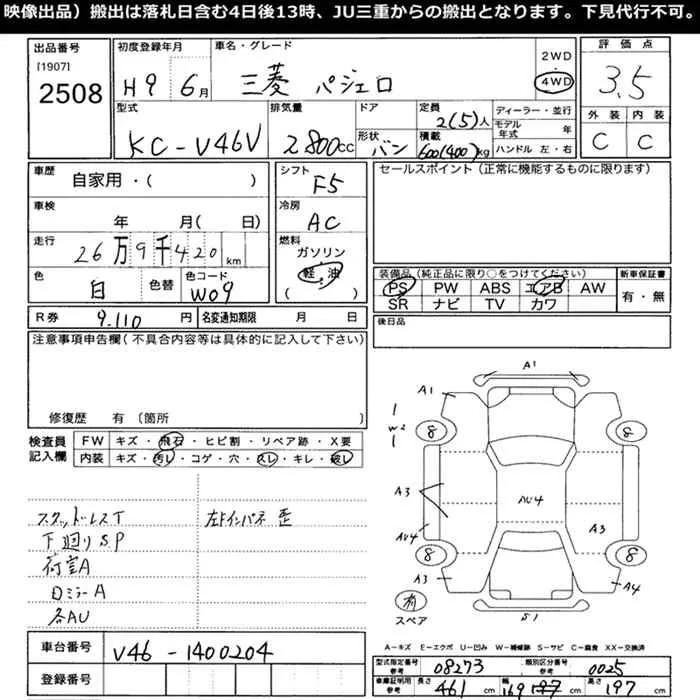 映像出品）搬出は落札日含む4日後13時、JU三重からの搬出となります。下見代行不可。
出品番号
[1907]
2508
初度登録年月
H9 6月
車名・グレード
三菱 パジェロ
2WD
・
4WD
評価点
3.5
外装 内装
C C
型式
KC-V46V
排気量
2800cc
ドア
形状
バン
定員
2(5)人
積載
600(400)kg
ディーラー・並行
モデル年式 年
ハンドル 左・右
車歴
自家用・( )
車検
年 月( 日)
走行
26万9千420km
色
白
色替
色コード
W09
シフト
F5
冷房
AC
燃料
ガソリン
軽・油
( )
セールスポイント（正常に機能するものに限ります）
装備品（純正品に限り○をつけてください）
PS PW ABS エアB AW
SR ナビ TV カワ
新車保証書
有・無
R券 9,110円
名変通知期限 月 日
後日品
注意事項申告欄（不具合内容等は具体的に記入して下さい）
修復歴 有（箇所 ）
検査員記入欄
FW キズ・飛石・ヒビ割・リペア跡・X要
内装 キズ・汚レ・コゲ・穴・スレ・キレ・破レ
下廻りS.P
荷室A
ロミラーA
各AU
A1
A1
W2
8
8
A3
AU4
AU4
A3
8
8
A3
A4
有
スペア
S1
A－キズ E－エクボ U－凹み W－補修跡 S－サビ C－腐食 XX－交換済
車台番号
V46-1400204
登録番号
型式指定番号
参考
08273
類別区分番号
参考
0025
車庫証明用
参考
長さ 461 cm
幅 169 cm
高さ 197 cm